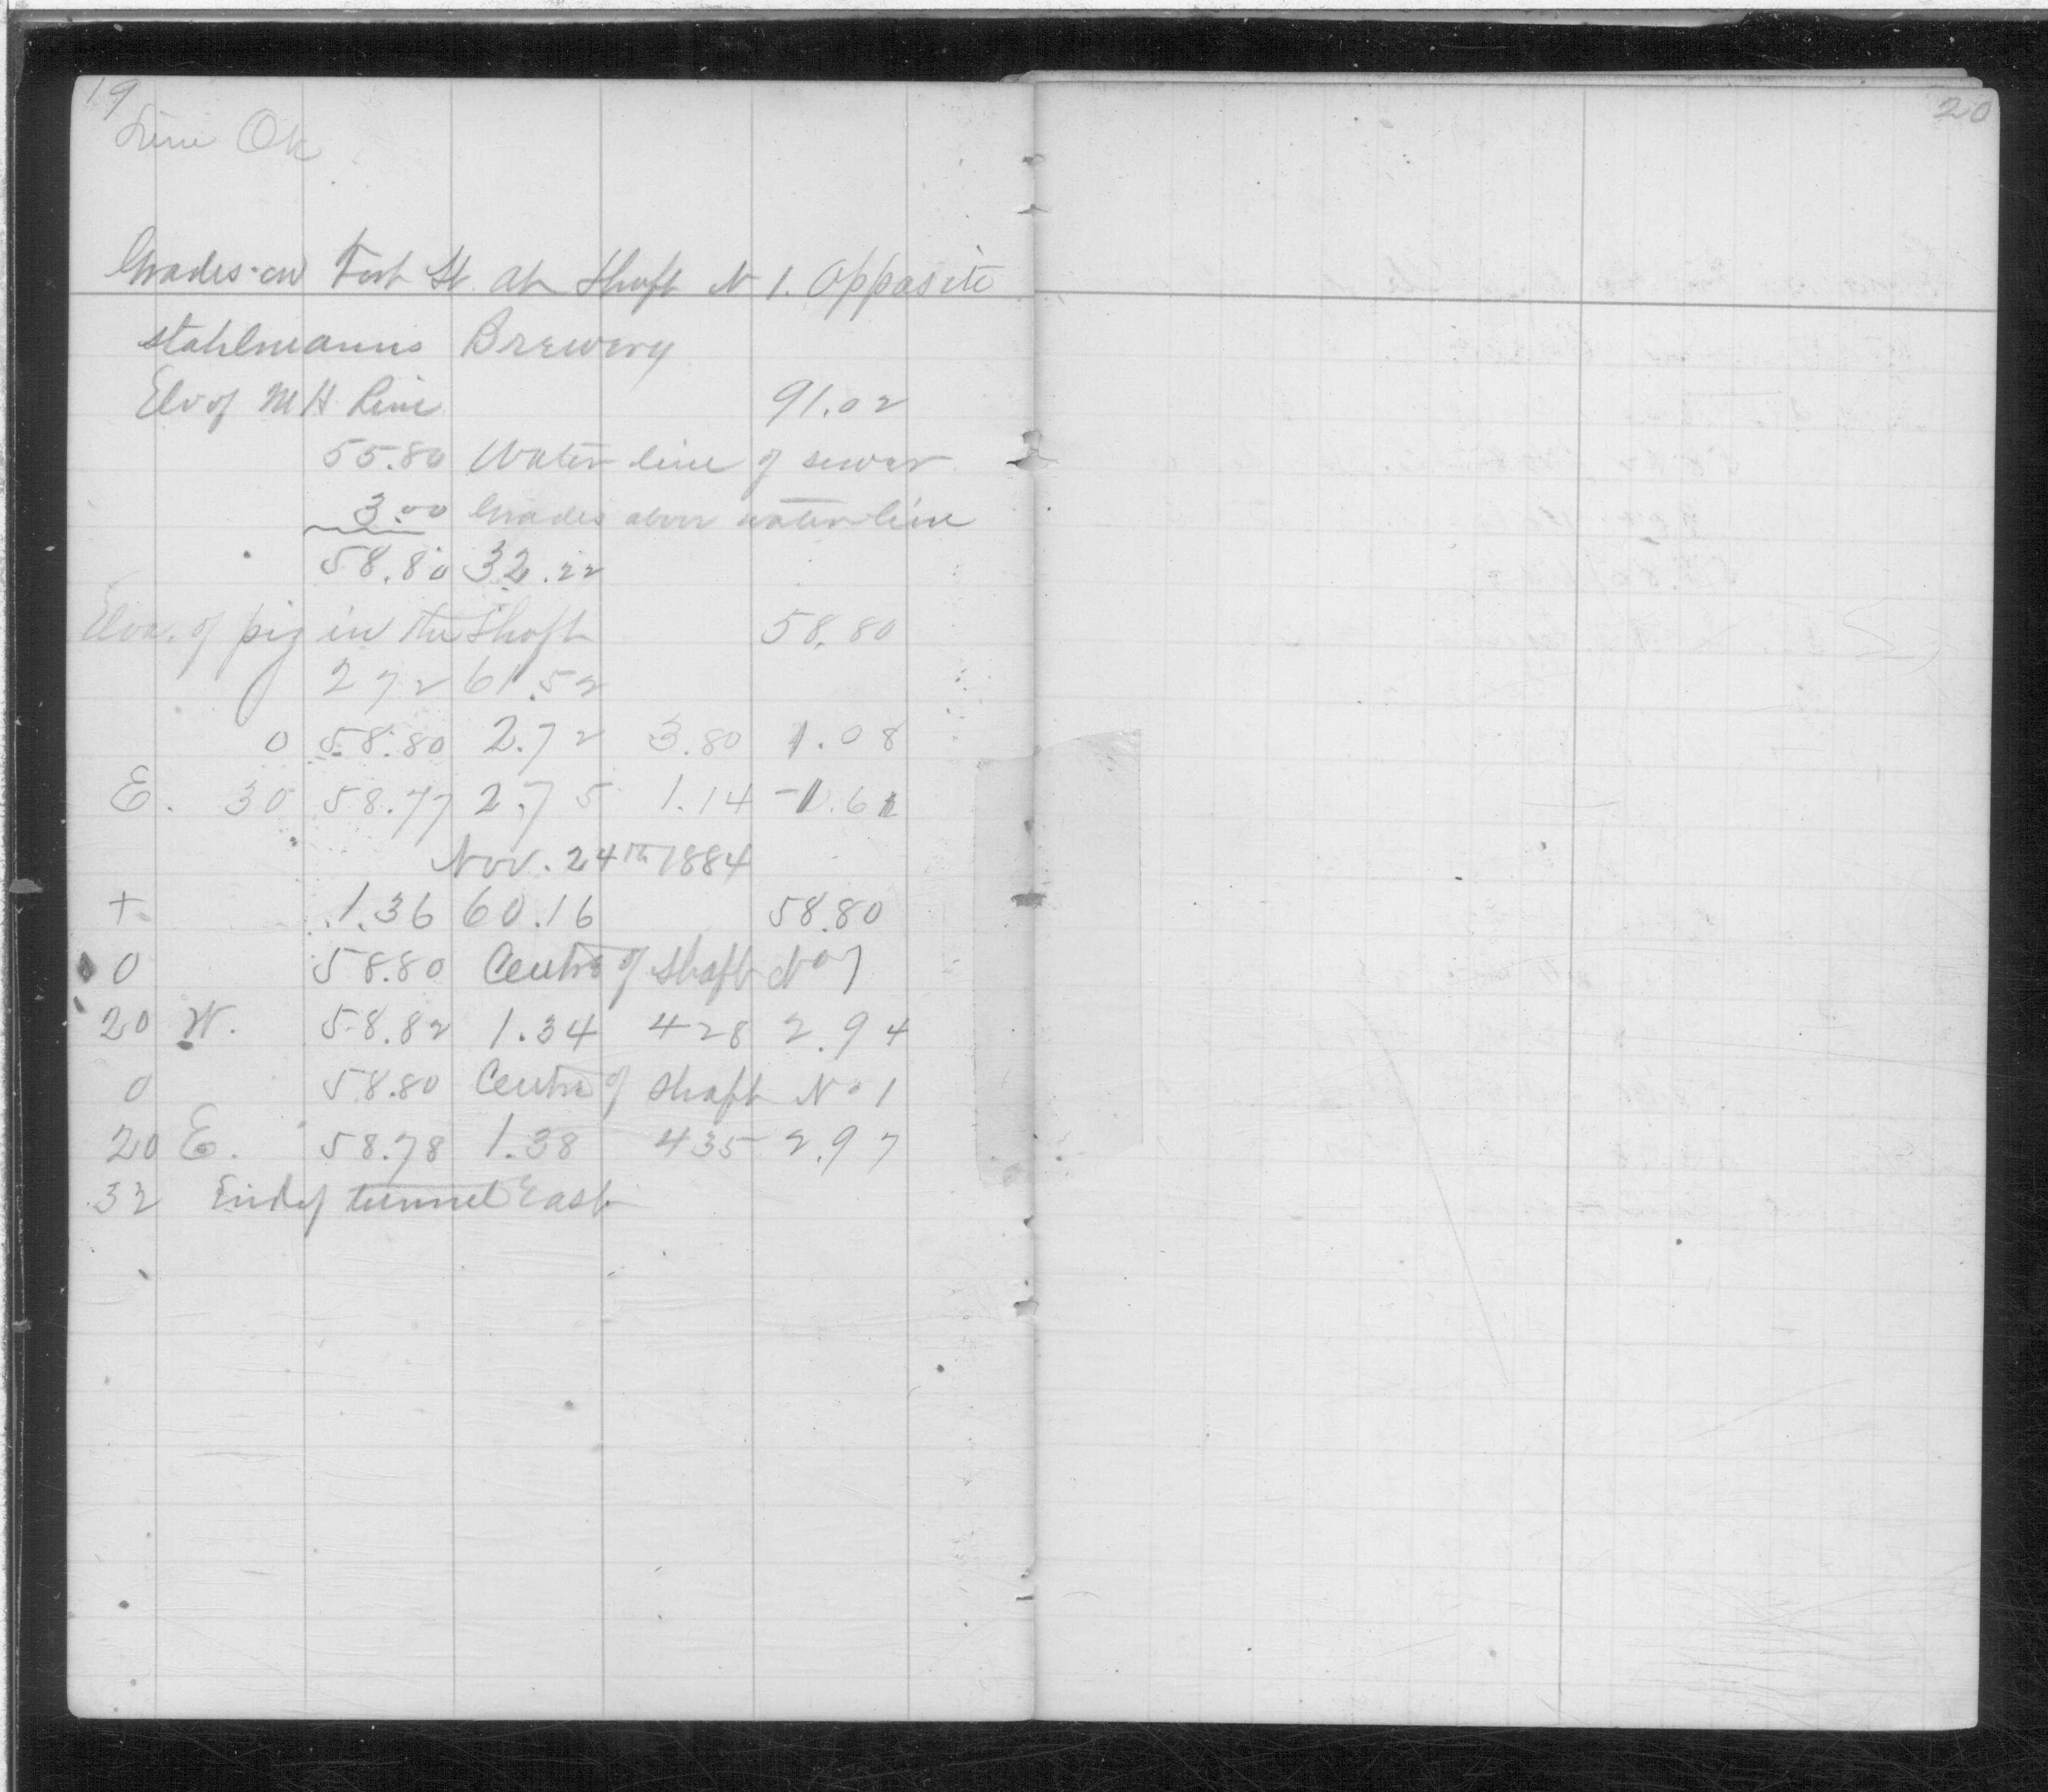 19
Line Ok
Grades on Fort St. at Shaft N 1. Opposite
Stahlmanns Brewery
Elv of M H Line 91.02
55.80 Water line of sewer
3.00 Grades above water line
58.80 32.22
Elva. of pig in the Shaft 58.80
2 72 61.52
0 58.80 2.72 3.80 1.08
E. 30 58.77 2.75 1.14 -1.61
Nov. 24th 1884
+ 1.36 60.16 58.80
0 58.80 Centre of Shaft No 1
20 W. 58.82 1.34 428 2.94
0 58.80 Centre of Shaft No 1
20 E. 58.78 1.38 435 2.97
32 End of tunnel East
20